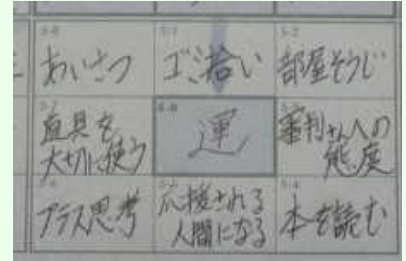 あいさつ
ゴミ拾い
部屋そうじ
道具を
大切に使う
運
審判さんへの
態度
プラス思考
応援される
人間になる
本を読む